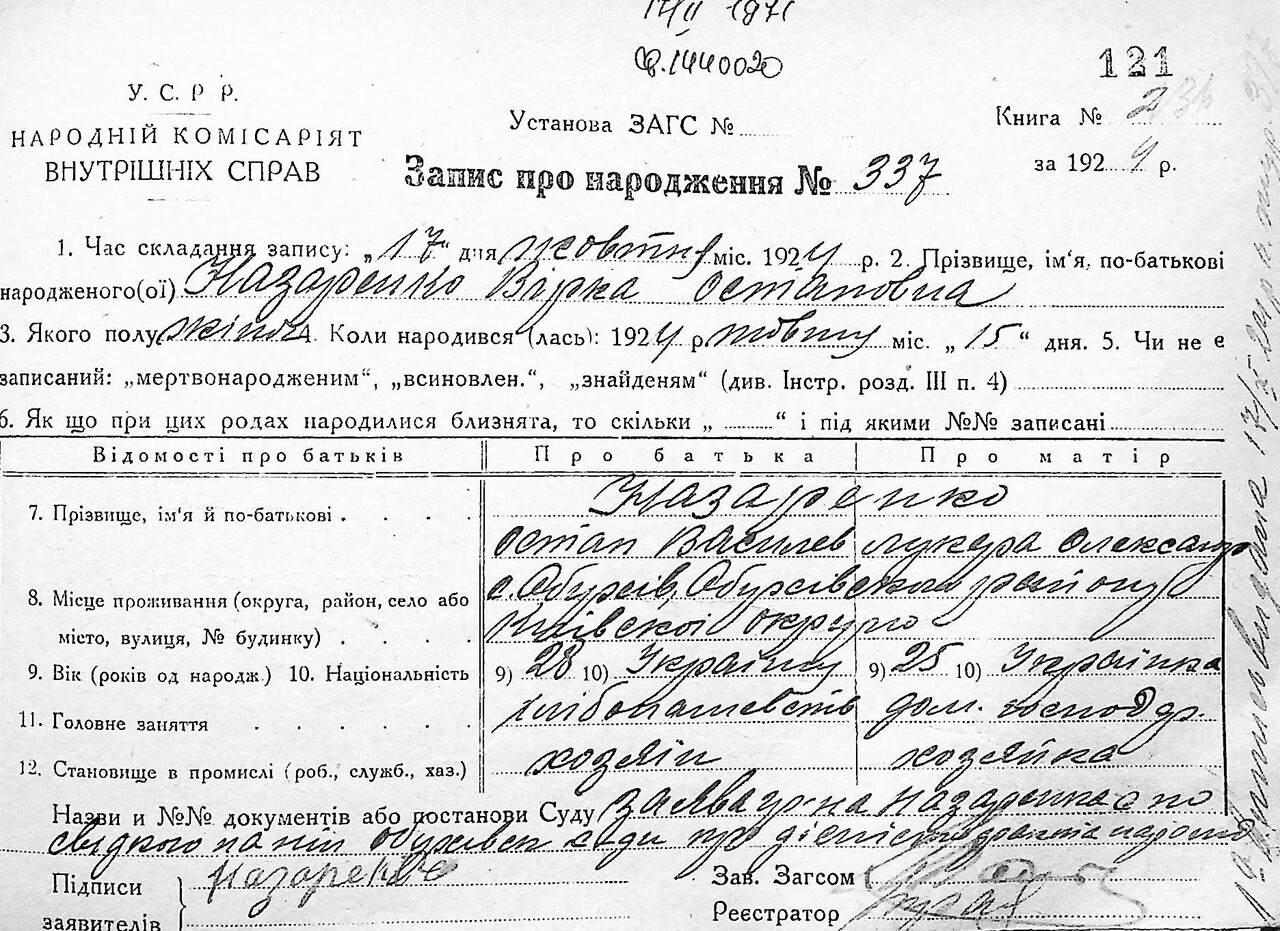 17/II 1971
св. 1440020
121
У. С. Р Р.
НАРОДНІЙ КОМІСАРІЯТ
ВНУТРІШНІХ СПРАВ
Установа ЗАГС №
Книга № 2
за 1924 р.
Запис про народження № 337
1. Час складання запису: „17“ дня жовтня міс. 1924 р. 2. Прізвище, ім‘я, по-батькові
народженого(ої) Назаренко Вірка Остаповна
3. Якого полу жіноч 4. Коли народився (лась): 1924 р. жовтня міс. „15“ дня. 5. Чи не є
записаний: „мертвонародженим“, „всиновлен.“, „знайденям“ (див. Інстр. розд. III п. 4)
6. Як що при цих родах народилися близнята, то скільки „ “ і під якими №№ записані
Відомості про батьків Про батька Про матір
Назаренко
7. Прізвище, ім‘я й по-батькові
Остап Василев Лукера Олександр
8. Місце проживання (округа, район, село або с. Обухів, Обухівскои району
місто, вулиця, № будинку) Київскоі округи
9. Вік (років од народж.) 10. Національність 9) 28 10) Українец 9) 25 10) Українка
11. Головне заняття хлібопашевств дом. господар.
12. Становище в промислі (роб., служб., хаз.) хозяїн хозяйка
Назви и №№ документів або постанови Суду Заява гр-на Назаренка с по
Підписи Назаренко
заявителів
Зав. Загсом
Реєстратор